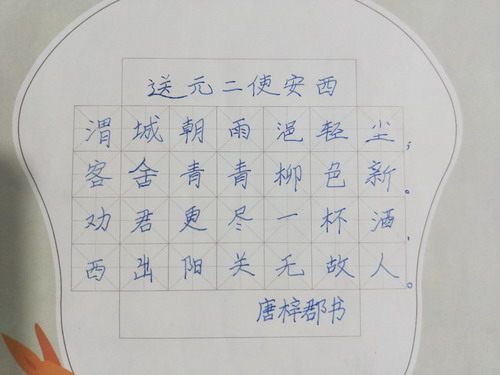 送元二使安西
渭城朝雨浥轻尘，
客舍青青柳色新。
劝君更尽一杯酒，
西出阳关无故人。
唐梓郡书